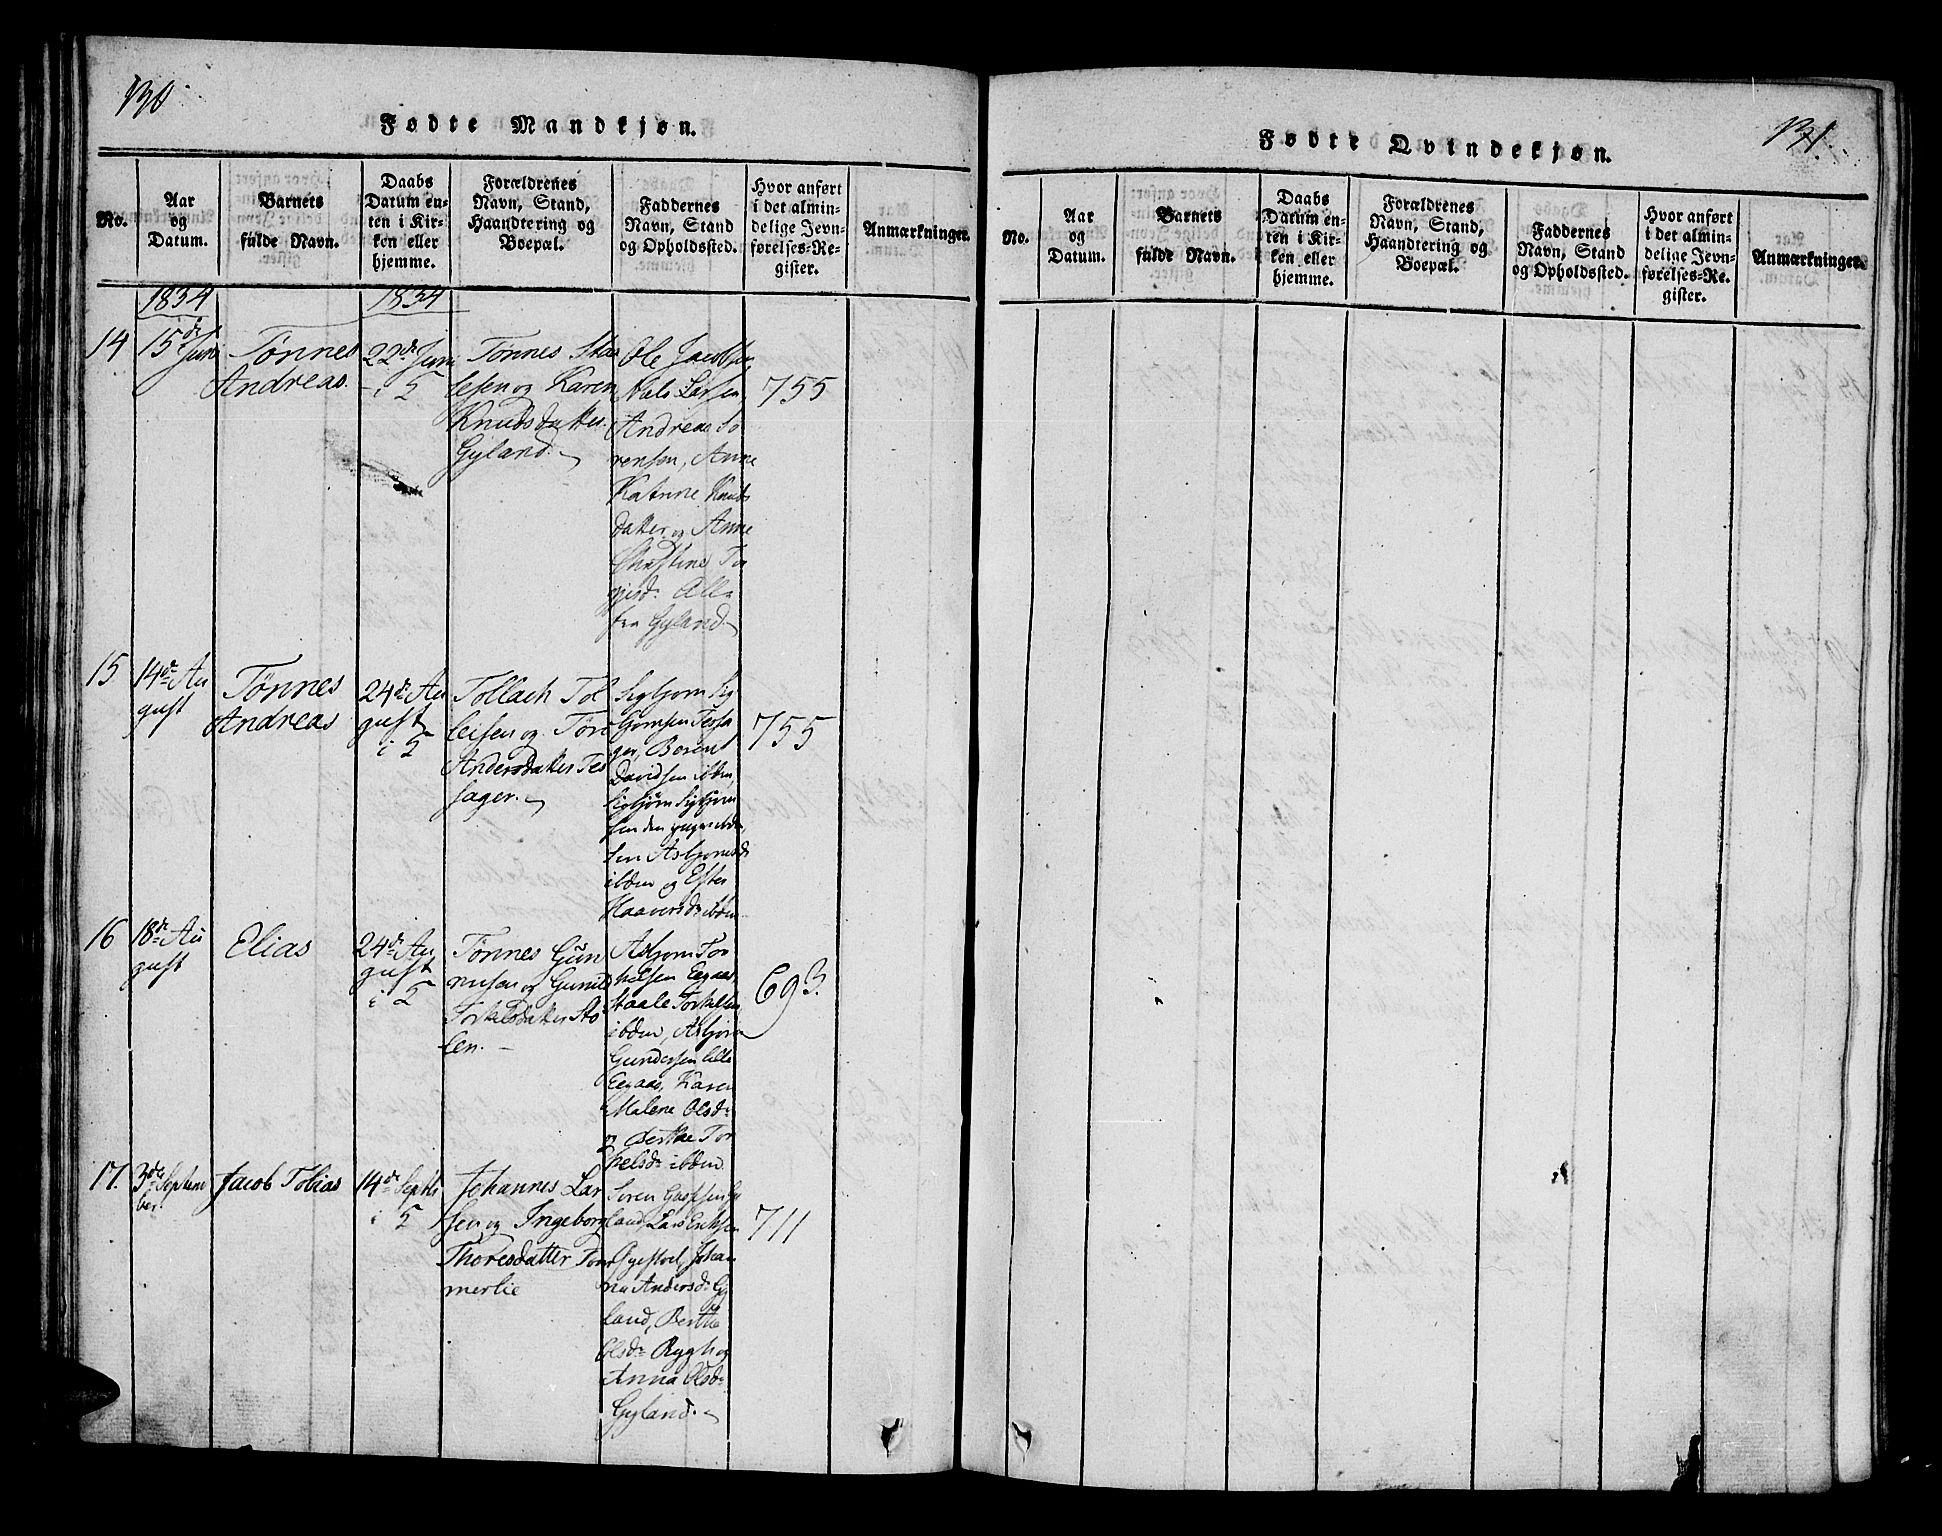 130.
Fødte Mandkjøn.
No.
Aar
og
Datum.
Barnets
fulde Navn.
Daabs
Datum en-
ten i Kir-
ken eller
hjemme.
Forældrenes
Navn, Stand,
Haandtering og
Boepæl.
Faddernes
Navn, Stand
og Opholdssted.
Hvor anført
i det almin-
delige Jevn-
førelses-Re-
gister.
Anmærkninger.
1834
1834
14
15de Juni
Tønnes
Andreas.
22de Juni
i
Tønnes Staa
lesen og Karen
Knudsdatter
Gyland.
Ole Jacobsen
Niels Larsen
Andreas So
rensen, Anne
Katrine Knuds
datter og Anne
Christine Tor
gjersd. Alle
fra Gyland.
755
15
14de Au
gust
Tønnes
Andreas
24de Au
gust
i
Tollach Tol
leisen og Tøn
Andersdatter Tes
sager.
Sigbjorn Sig
bjornsen Tessa
ger, Berent
Davidsen ibdm,
Sigbjørn Sigbjorn
sen den yngre ibdm,
Asbjornsd.
ibdm og Ester
Haaversd. ibdm.
755
16
18de Au
gust
Elias
24de Au
gust
i
Tønnes Gun
nusen og Gunild
Torkelsdatter Sto
len.
Asbjorn Tor
kelsen Eegaas
Staale Torkelsen
ibdm, Asbjorn
Gundersen lille
Eegaas, Karen
Malene Olsd.
og Berthe Tor
kelsd. ibdm.
693.
17.
3die Septem
ber
Jacob Tobias
14de Septb
i
Johannes Lar
sen og Ingeborg
Thoresdatter Tom
merlie
Soren Gy
land, Lars Eriksen
Johan
na Andersd. Gy
land, Berthe
Olsd. Rygh og
Anna Olsd.
Gyland.
711
131.
Fødte Qvindekjøn.
No.
Aar
og
Datum.
Barnets
fulde Navn.
Daabs
Datum en-
ten i Kir-
ken eller
hjemme.
Forældrenes
Navn, Stand,
Haandtering og
Boepæl.
Faddernes
Navn, Stand
og Opholdssted.
Hvor anført
i det almin-
delige Jevn-
førelses-Re-
gister.
Anmærkninger.